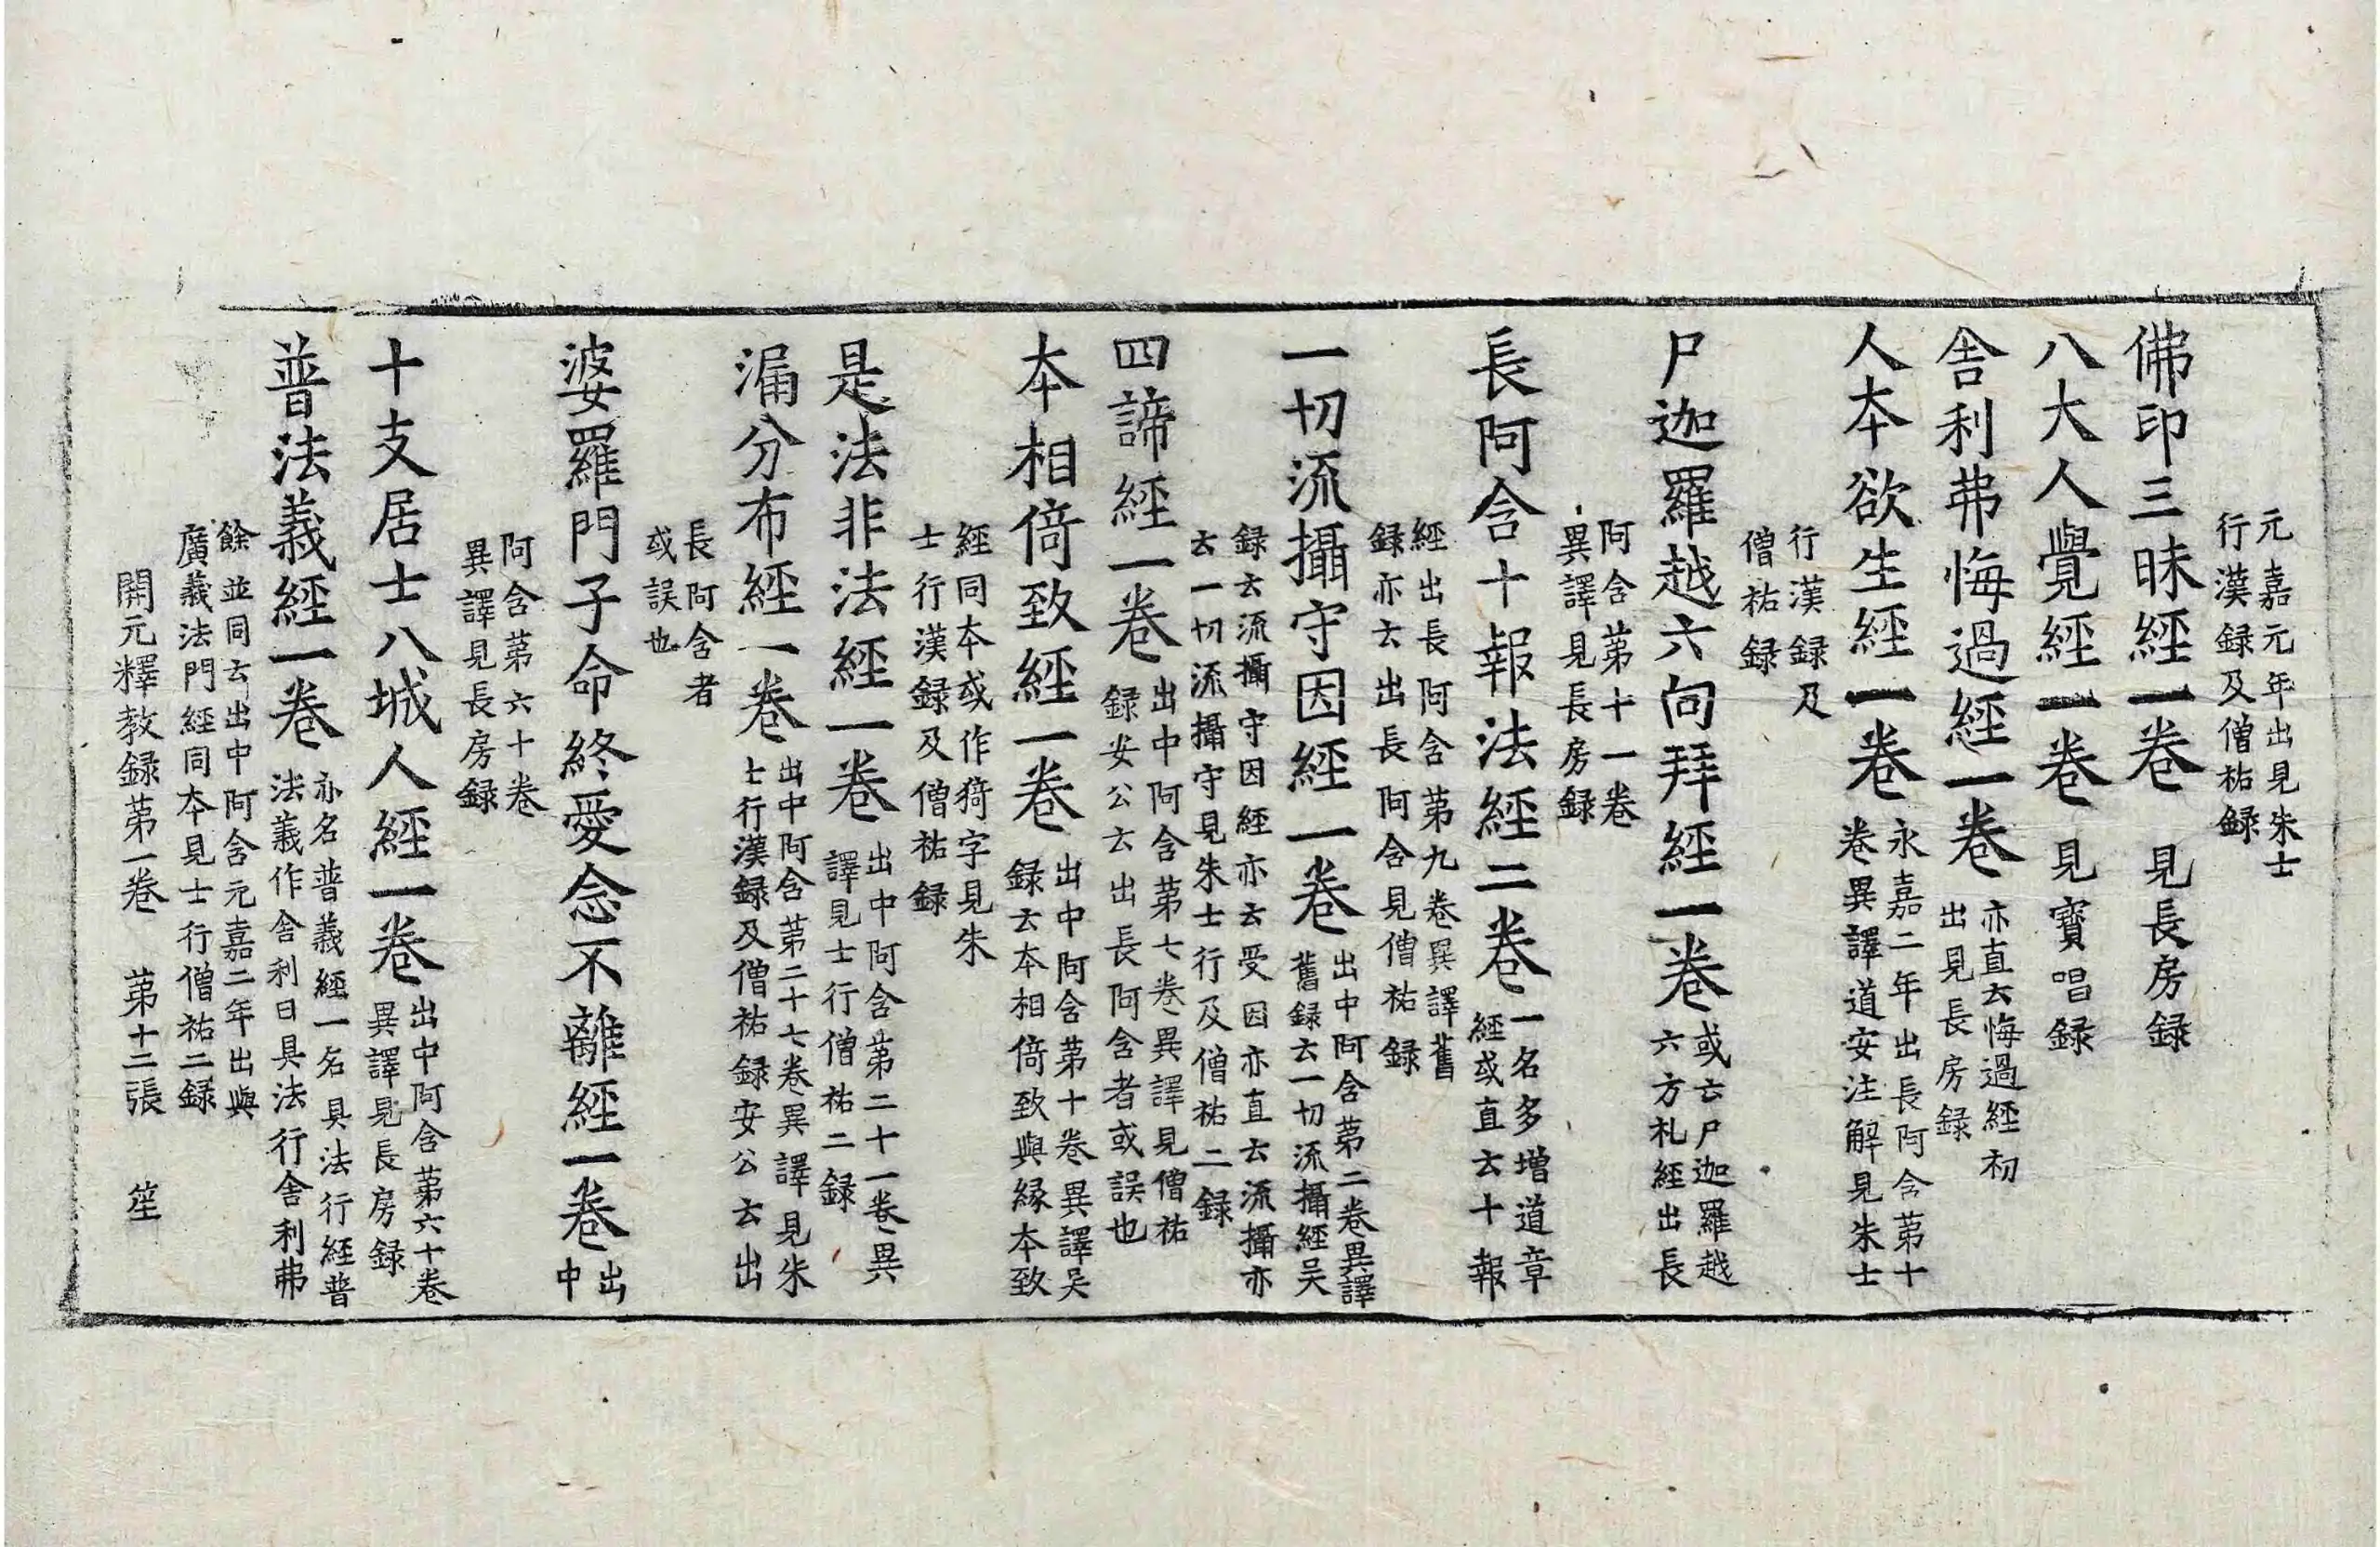 元嘉元年出見朱士
行漢録及僧祐録
佛印三昧經一卷 見長房録
八大人覺經一卷 見寶唱録
舎利弗悔過經一卷 亦直云悔過經初
出見長房録
人本欲生經一卷 永嘉二年出長阿含第十
卷異譯道安注解見朱士
行漢録及
僧祐録
尸迦羅越六向拜經一卷 或云尸迦羅越
六方礼經出長
阿含第十一卷
異譯見長房録
長阿含十報法經二卷 一名多增道章
經或直云十報
經出長阿含第九卷異譯舊
録亦云出長阿含見僧祐録
一切流攝守因經一卷 出中阿含第二卷異譯
舊録云一切流攝經吴
録云流攝守因經亦云受因亦直云流攝亦
云一切流攝守見朱士行及僧祐二録
四諦經一卷 出中阿含第七卷異譯見僧祐
録安公云出長阿含者或誤也
本相倚致經一卷 出中阿含第十卷異譯吴
録云本相倚致與緣本致
經同本或作猗字見朱
士行漢録及僧祐録
是法非法經一卷 出中阿含第二十一卷異
譯見士行僧祐二録
漏分布經一卷 出中阿含第二十七卷異譯見朱
士行漢録及僧祐録安公云出
長阿含者
或誤也
婆羅門子命終愛念不離經一卷 出
中
阿含第六十卷
異譯見長房録
十支居士八城人經一卷 出中阿含第六十卷
異譯見長房録
普法義經一卷 亦名普義經一名具法行經普
法義作舎利曰具法行舎利弗
餘並同云出中阿含元嘉二年出與
廣義法門經同本見士行僧祐二録
開元釋教録第一卷 第十二張 笙